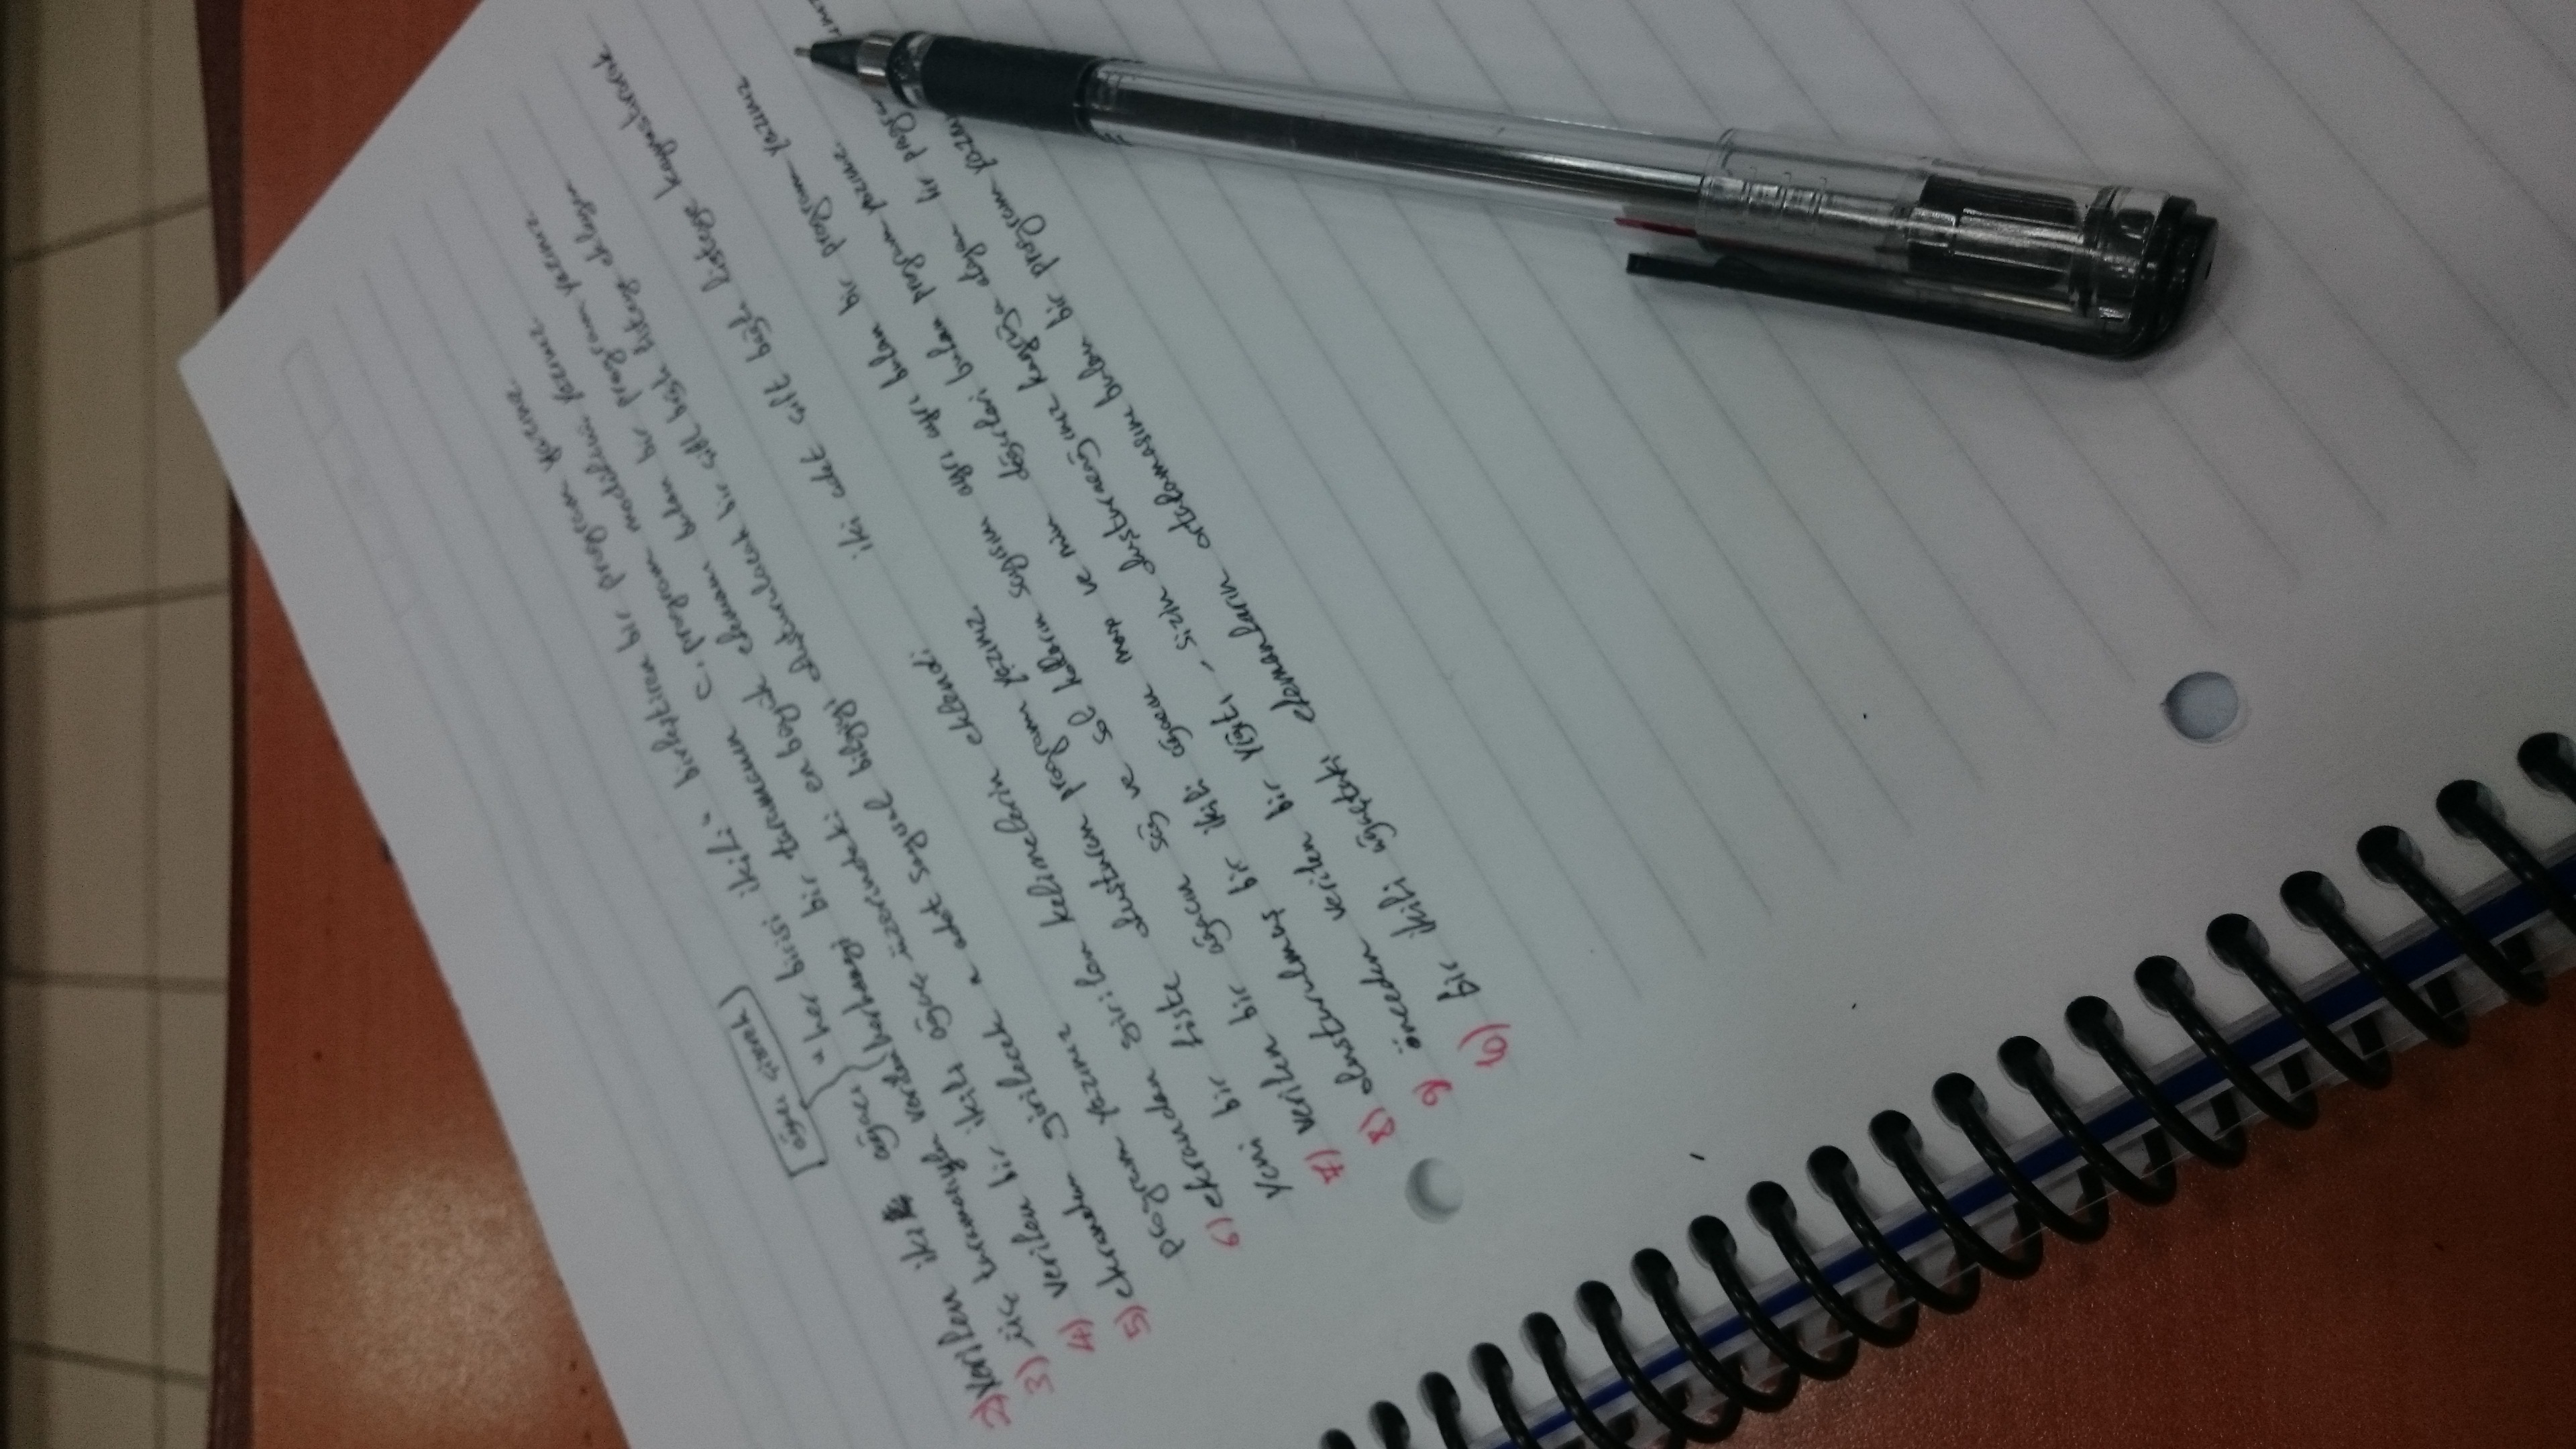 ağacı çizerek
2) Verilen iki ağacı "her birisi ikili" birleştiren bir program yazınız.
3) üç taramasıyla verilen herhangi bir taramanın C. program modülünü yazınız.
4) verilen bir ikili ağaç üzerindeki en büyük elemanı bulan bir program yazınız
5) ekrandan girilecek n adet sayısal bilgiyi oluşturulacak bir çift bağlı listeye ekleyen
program yazınız
6) ekrandan girilen kelimelerin eklendi iki adet çift bağlı listeye kaynaştırarak
yeni bir liste oluşturan programı yazınız.
7) verilen bir ağacın sağ ve sol kolların sayısını ayrı ayrı bulan bir program yazınız
8) oluşturulmuş bir ikili ağacın max ve min değerleri bulan program yazınız.
9) önceden verilen bir yığıtı, sizin oluşturacağınız kuyruğa atayan bir progra
10) bir ikili ağaçtaki elemanların ortalamasını bulan bir program yazınız